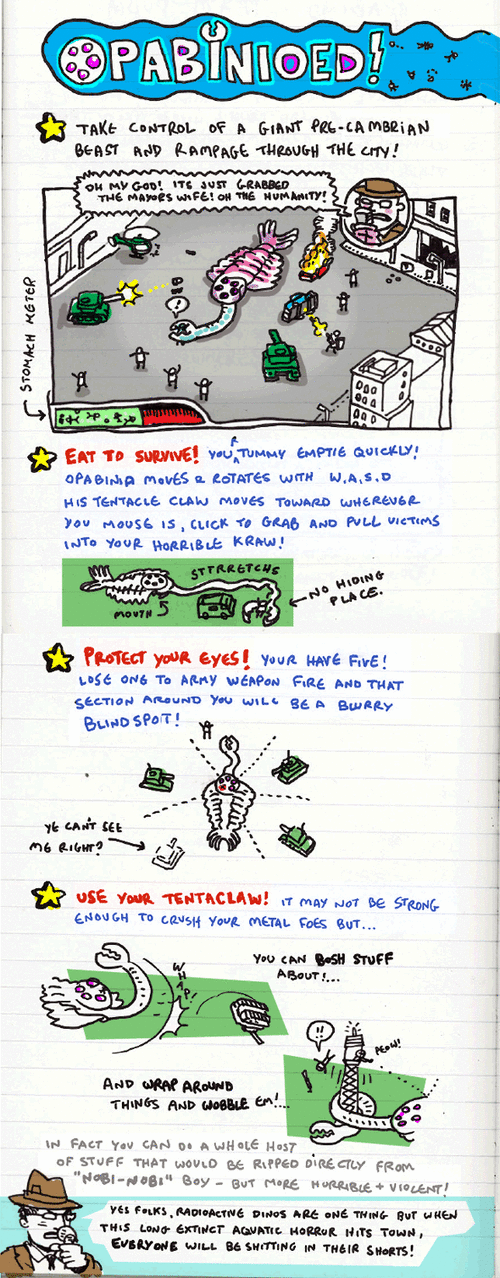 OPABINIOED!
TAKE CONTROL OF A GIANT PRE-CAMBRIAN
BEAST AND RAMPAGE THROUGH THE CITY!
OH MY GOD! ITS JUST GRABBED
THE MAYORS WIFE! OH THE HUMANITY!
!
STOMACH METER
EAT TO SURVIVE! YOUR TUMMY EMPTIE QUICKLY!
OPABINIA MOVES & ROTATES WITH W.A.S.D
HIS TENTACLE CLAW MOVES TOWARD WHEREVER
YOU MOUSE IS, CLICK TO GRAB AND PULL VICTIMS
INTO YOUR HORRIBLE KRAW!
STTRRETCHS
MOUTH
NO HIDING
PLACE.
PROTECT YOUR EYES! YOUR HAVE FIVE!
LOSE ONE TO ARMY WEAPON FIRE AND THAT
SECTION AROUND YOU WILL BE A BLURRY
BLINDSPOT!
YE CAN'T SEE
ME RIGHT?
USE YOUR TENTACLAW! IT MAY NOT BE STRONG
ENOUGH TO CRUSH YOUR METAL FOES BUT...
YOU CAN BOSH STUFF
ABOUT!...
WHAP!
!!
PEOW!
AND WRAP AROUND
THINGS AND WOBBLE EM!...
IN FACT YOU CAN DO A WHOLE HOST
OF STUFF THAT WOULD BE RIPPED DIRECTLY FROM
"NOBI-NOBI" BOY - BUT MORE HORRIBLE + VIOLENT!
YES FOLKS, RADIOACTIVE DINOS ARE ONE THING BUT WHEN
THIS LONG EXTINCT AQUATIC HORROR HITS TOWN,
EVERYONE WILL BE SHITTING IN THEIR SHORTS!